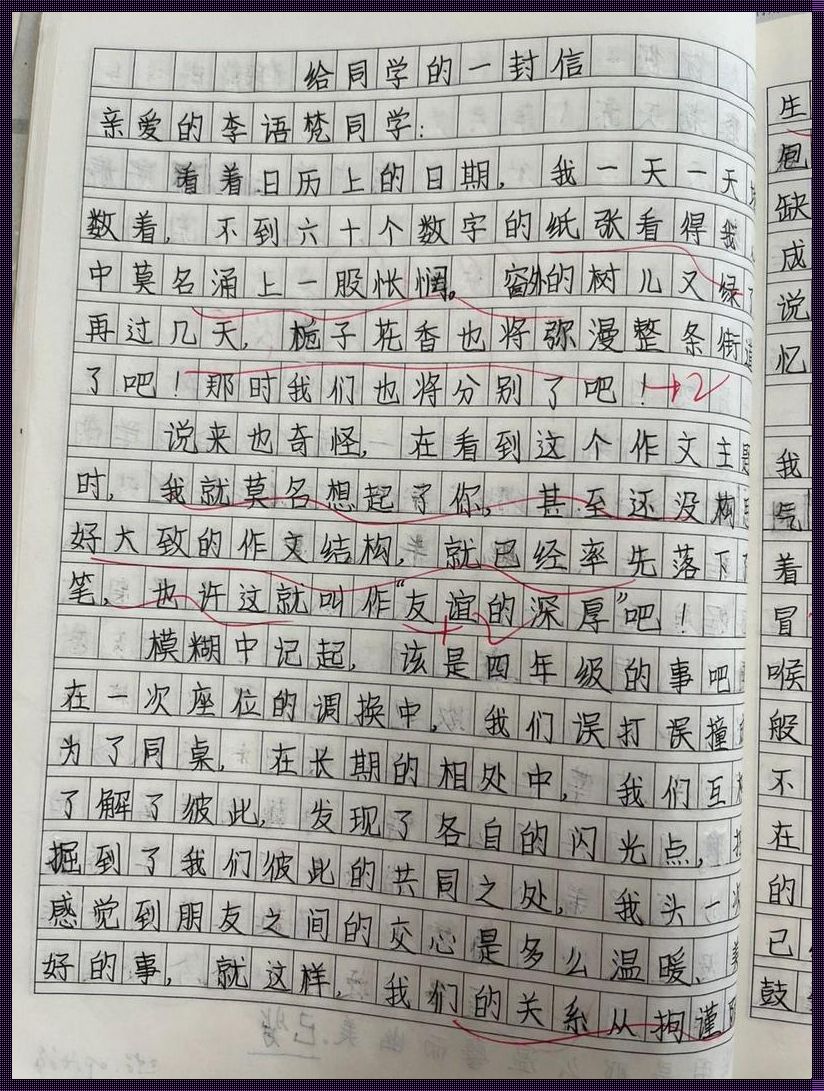 给同学的一封信
亲爱的李语梵同学：
看着日历上的日期，我一天一天
数着，不到六十个数字的纸张看得我
中莫名涌上一股怅惘。窗外的树儿又绿
再过几天，栀子花香也将弥漫整条街道
了吧！那时我们也将分别了吧！
说来也奇怪，在看到这个作文主题
时，我就莫名想起了你，甚至还没构
好大致的作文结构，就已经率先落下
笔，也许这就叫作“友谊的深厚”吧！
模糊中记起，该是四年级的事吧
在一次座位的调换中，我们误打误撞
为了同桌，在长期的相处中，我们互
了解了彼此，发现了各自的闪光点，
掘到了我们彼此的共同之处，我头一
感觉到朋友之间的交心是多么温暖、
好的事，就这样，我们的关系从拘谨
生
缺
成
说
忆
我
气
着
冒
喉
般
不
在
的
已
鼓